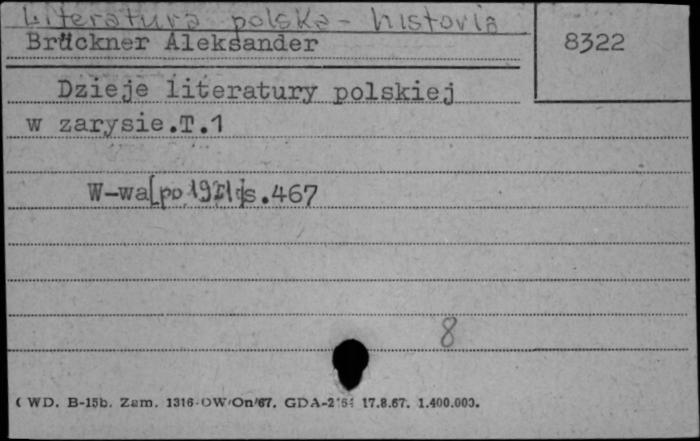 Literatura polska - historia
Brückner Aleksander
8322
Dzieje literatury polskiej
w zarysie.T.1
W-wa[po s.467
8
( WD. B-15b. Zam. 1316-OW/On/67. GDA- 17.8.67. 1.400.000.